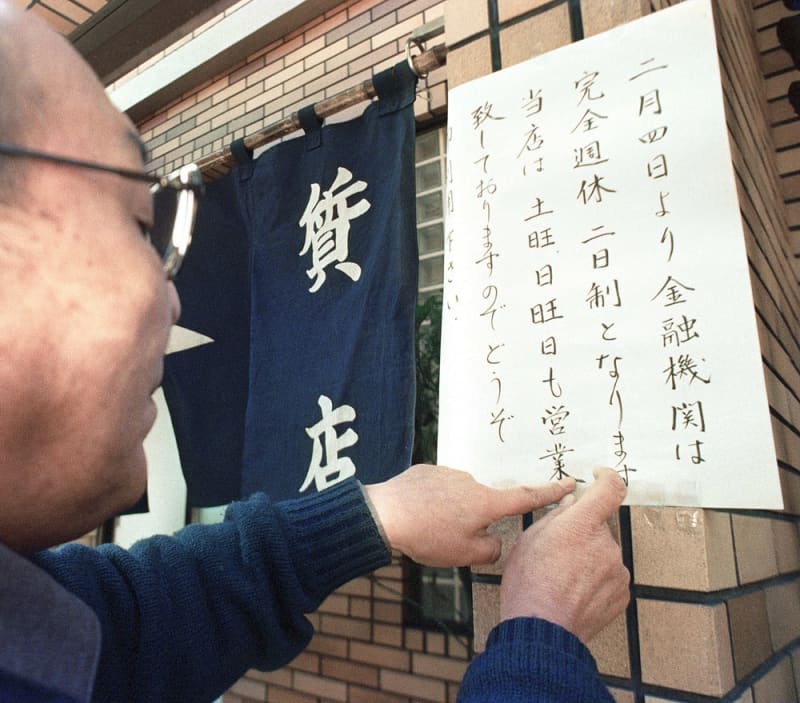 二月四日より金融機関は
完全週休二日制となります
当店は土旺、日旺日も営業
致しておりますのでどうぞ
質店